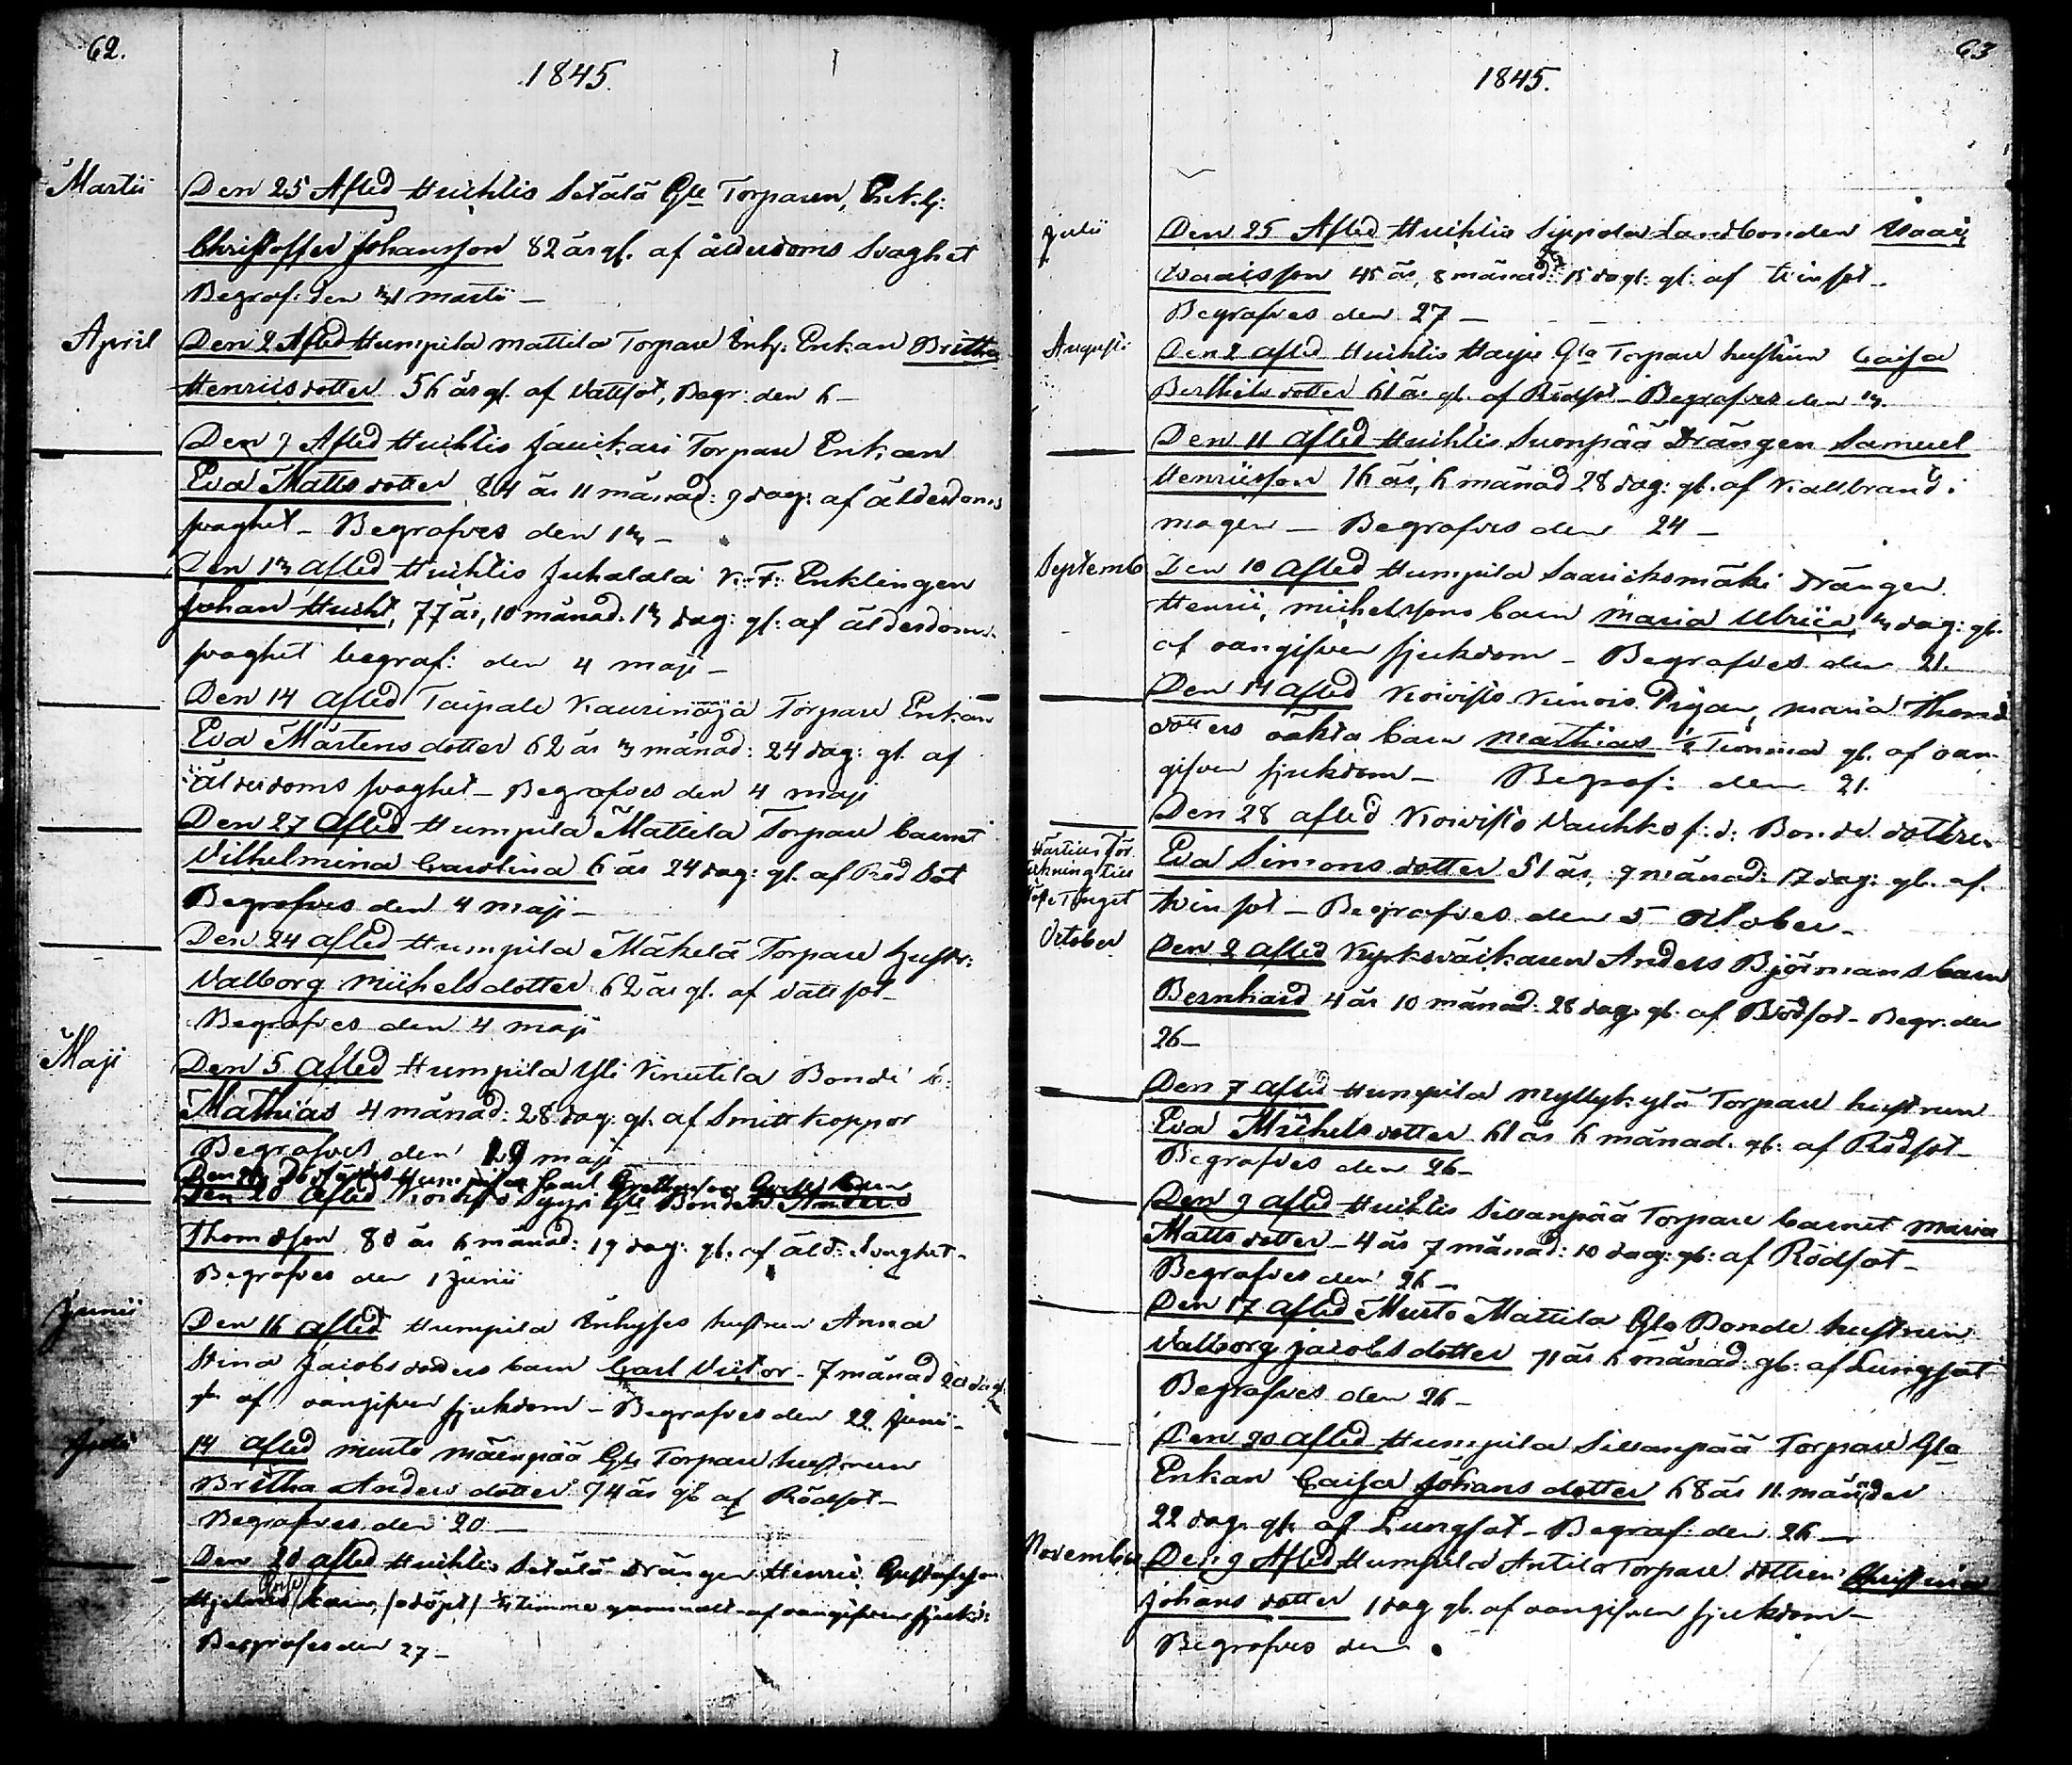 62.
1845.
Martii
Den 25 Afled Huihtis Setälä Gle Torparen, Enk.g:
Christoffer Johansson 82 år gl. af ålderdoms Svaghet
Begraf: den martii —
April
Den 2 Afled Humpila Mattila Torpare Inh: Enkan Britha
Henricsdotter 56 år gl. af Vattsot, Begr: den 6 —
Den 9 Afled Huihtis Torpare Enkan
Eva Mattsdotter 84 år 11 månad: 9 dag: af ålderdoms
svaghet — Begrafves den 13 —
Den 13 Afled Huihtis Juhalala Enklingen
Johan Huiht, 77 år, 10 månad. 13 dag: gl: af ålderdoms
svaghet begraf: den 4 maji —
Den 14 Afled Taipale Kaurinoja Torpare Enkan
Eva Mårtens dotter 62 år 3 månad: 24 dag: gl. af
ålderdoms svaghet — Begrafves den 4 maji
Den 27 Afled Humpila Mattila Torpare barnet
Vilhelmina Carolina 6 år 24 dag: gl. af Röd Sot
Begrafves den 4 maji —
Den 24 Afled Humpila Mäkelä Torpare hustr:
Valborg Michelsdotter 62 år gl. af Vatt sot —
Begrafves den 4 maji
Maji
Den 5 Afled Humpila Yli Bonde
Mathias 4 månad: 28 dag: gl. af Smitt koppor
Begrafves den 19 maj
Den 20 Afled Koivisto Gle Bonden Anders
Thomæson 80 år 6 månad: 19 dag: gl. af åld: Svaghet —
Begrafves den 1 Junii
Junii
Den 16 Afled Humpila Inhyses hustrun Anna
Stina Jacobs dotters barn Carl Victor 7 månad 20 dag:
gl. af oangifven sjukdom — Begrafves den 22 Junii —
Julii
14 Afled Murto Mäenpää Gle Torpare hustrun
Britha Anders dotter 74 år gl af Rödsot —
Begrafves den 20 —
Den 20 Afled Huihtis Setälä Drängen Henric Gustafsson
barn, /odöpt/ timme gammalt af oangifven sjukd:
Begrafves den 27 —
63
1845.
Julii
Den 25 Afled Huihtis Sippola Landbonden Isaac
Isaacsson 45 år, 8 månad: 15 dag: gl: af tvinsot —
Begrafves den 27 —
Augusti
Den 2 Afled Huihtis Harju Gla Torpare hustrun Caisa
Berthils dotter 61 år gl. af Rödsot — Begrafves den
Den 11 Afled Huihtis Suonpää Drängen Samuel
Henricsson 16 år, 6 månad 28 dag: gl. af Kallbrand i
magen — Begrafves den 24 —
Septemb
Den 10 Afled Humpila Saaricksmäki Drängen
Henric Michelssons barn Maria Ulrica 3 dag: gl.
af oangifven sjukdom — Begrafves den 21.
Den 14 Afled Koivisto Pigan, Maria Thomæ
dotters oäkta barn Mathias ½ Timma gl. af oan-
gifven sjukdom — Begraf: den 21.
Den 28 Afled Koivisto Vauhko f: d: Bonde dotteren
Eva Simons dotter 51 år, 9 månad: 17 dag: gl. af
tvin sot — Begrafves den 5 October —
October
Den 2 Afled Kyrkoväktaren Anders Björmans barn
Bernhard 4 år 10 månad. 28 dag. gl. af Rödsot — Begr. den
26 —
Den 7 Afled Humpila Myllykylä Torpare hustrun
Eva Michelsdotter 61 år 6 månad. gl: af Rödsot —
Begrafves den 26 —
Den 9 Afled Huihtis Sillanpää Torpare barnet Maria
Matts dotter — 4 år 7 månad: 10 dag: gl: af Rödsot —
Begrafves den 26 —
Den 17 Afled Murto Mattila Gla Bonde hustrun
Valborg Jacobsdotter 71 år 6 månad: gl: af Lungsot
Begrafves den 26 —
Den 20 Afled Humpila Sillanpää Torpare Gla
Enkan Caisa Johans dotter 68 år 11. månader
22 dag. gl. af Lungsot — Begraf: den 26 —
November
Den 9 Afled Humpila Antila Torpare dottren Christina
Johans dotter 1 dag gl. af oangifven sjukdom —
Begrafves den